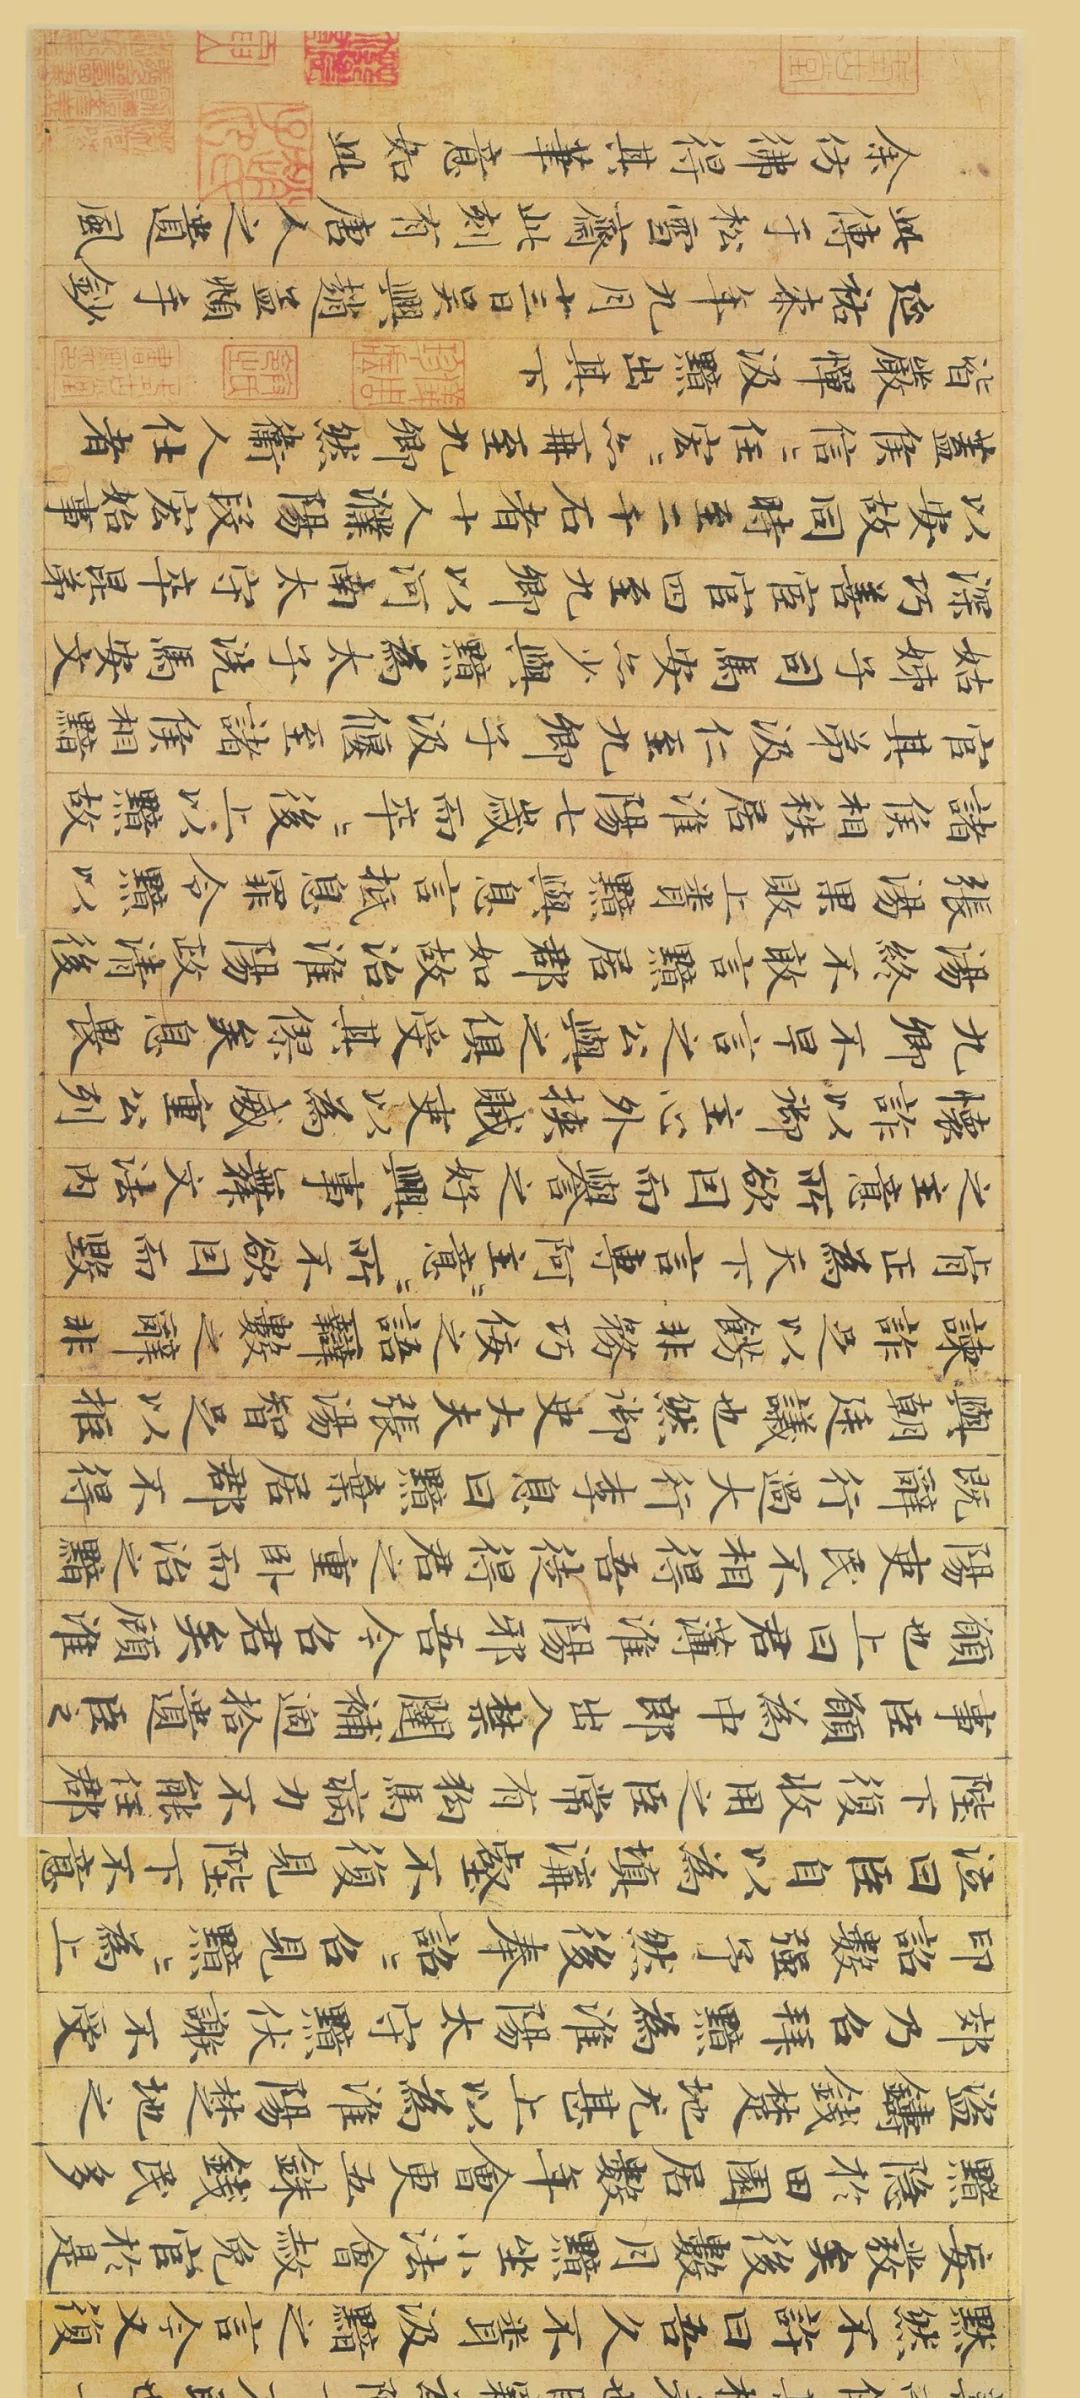 默然不許曰吾久不聞汲黯之言今又復
妄發矣後數月黯坐小法會赦免官於是
黯隱於田園居數年會更五銖錢民多
盜鑄錢楚地尤甚上以為淮陽楚地之
郊乃召拜黯為淮陽太守黯伏謝不受
印詔數強予然後奉詔〻召見黯〻為上
泣曰臣自以為填溝壑不復見陛下不意
陛下復收用之臣常有狗馬病力不能任郡
事臣願為中郎出入禁闥補過拾遺臣之
願也上曰君薄淮陽邪吾今召君矣顧淮
陽吏民不相得吾徒得君之重臥而治之黯
既辭行過大行李息曰黯棄居郡不得
與朝廷議也然御史大夫張湯智足以拒
諫詐足以飾非務巧佞之語辯數之辭非
肯正為天下言專阿主意〻所不欲因而毀
之主意所欲因而譽之好興事舞文法內
懷詐以御主心外挾賊吏以為威重公列
九卿不早言之公與之俱受其僇矣息畏
湯終不敢言黯居郡如故治淮陽政清後
張湯果敗上聞黯與息言抵息罪令黯以
諸侯相秩居淮陽七歲而卒〻後上以黯故
官其弟汲仁至九卿子汲偃至諸侯相黯
姑姊子司馬安亦少與黯為太子洗馬安文
深巧善宦官四至九卿以河南太守卒昆弟
以安故同時至二千石者十人濮陽段宏始事
蓋侯信〻任宏〻亦再至九卿然衛人仕者
皆嚴憚汲黯出其下
延祐柒年九月十三日吳興趙孟頫手鈔
此傳于松雪齋此刻有唐人之遺風
余仿彿得其筆意如此